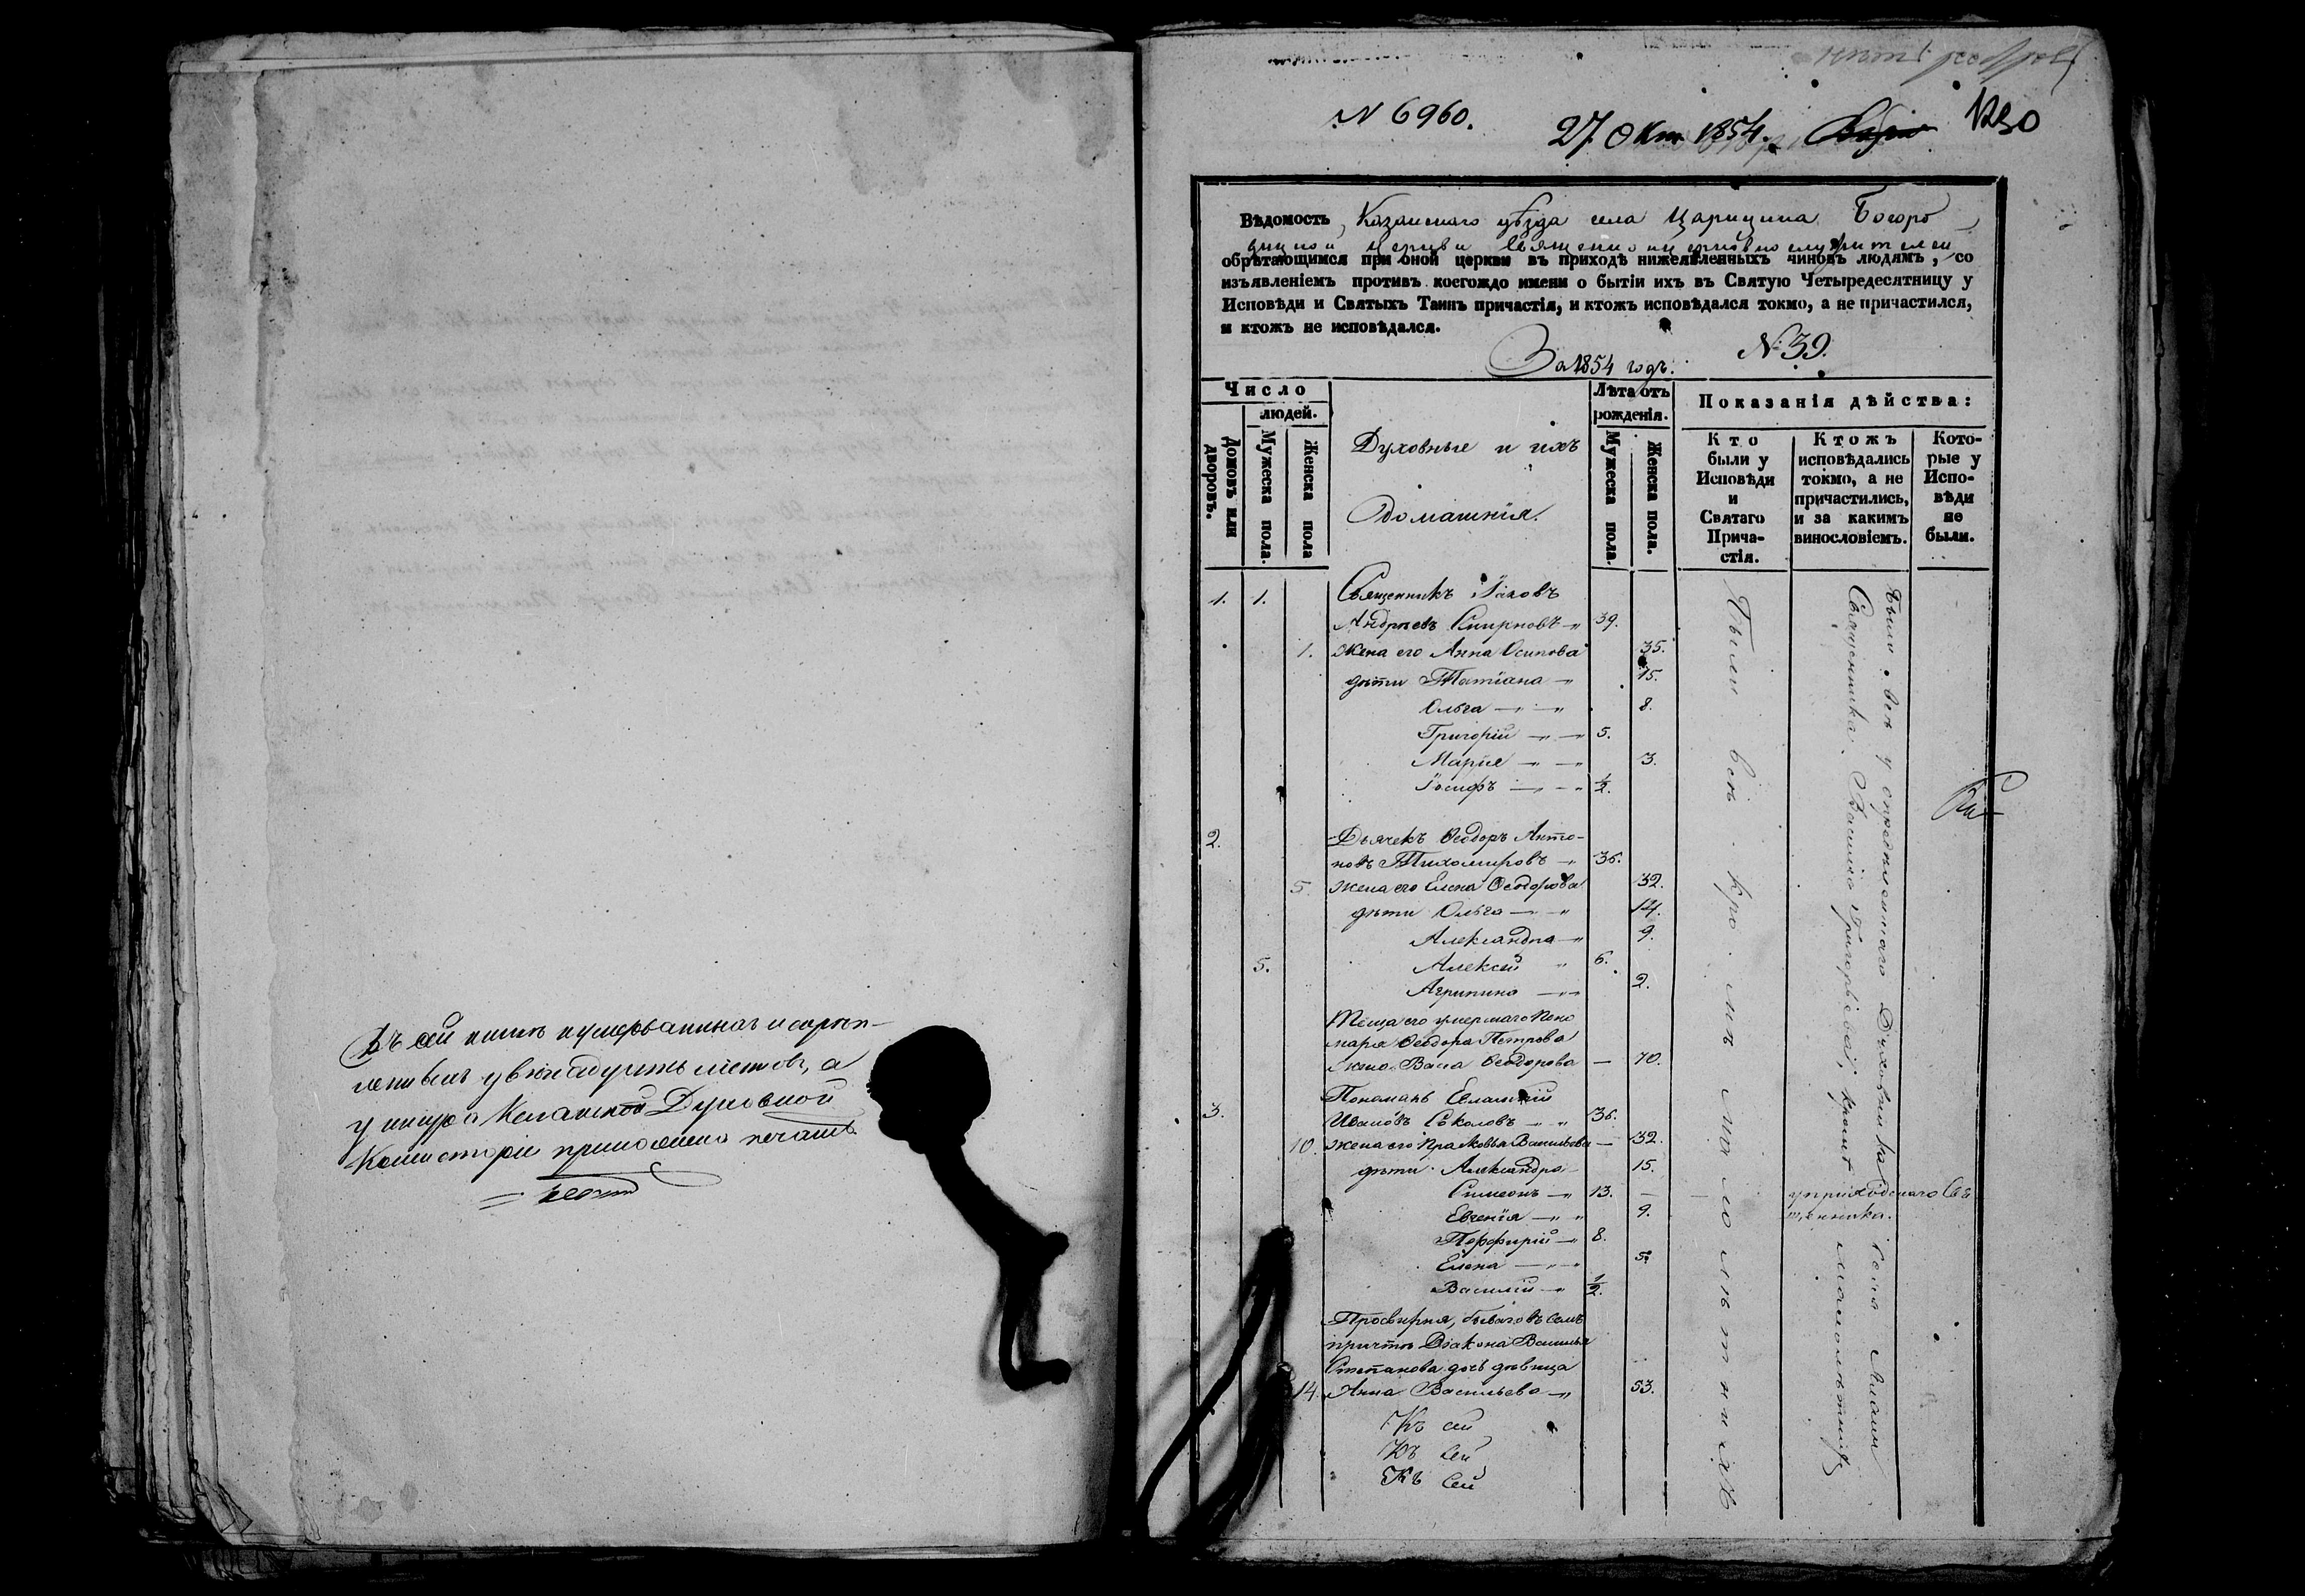 Въ сей книгѣ нумерованныхъ и скрѣп-
ленныхъ листовъ, а
у шнура Казанской Духовной
Консисторіи приложена печать.
N 6960.
27. Окт. 1854.
1230
Вѣдомость, Казанскаго уѣзда села Царицына Богоро
дицкой церкви священно и церковно служителей
обрѣтающимся при оной церкви въ приходѣ нижеявленныхъ чиновъ людямъ, со
изъявленіемъ противъ коегождо имени о бытіи ихъ въ Святую Четыредесятницу у
Исповѣди и Святыхъ Таинъ причастія, и ктожъ исповѣдался токмо, а не причастился,
и ктожъ не исповѣдался.
N: 39.
За 1854 годъ.
Число
людей.
Домовъ или дворовъ.
Мужеска пола.
Женска пола
Духовные и ихъ
домашнія.
Лѣта отъ
рожденія.
Мужеска пола.
Женска пола.
Показанія дѣйства:
Кто
были у
Исповѣди
и
Святаго
Прича-
стія.
Ктожъ
исповѣдались
токмо, а не
причастились,
и за какимъ
винословіемъ.
Кото-
рые у
Испо-
вѣди
не
были.
1. 1. Священникъ Іаковъ
Андреевъ Смирновъ 39.
1. Жена его Анна Осипова 35.
дѣти Татіана 15.
Ольга 8.
Григорій 5.
Марія 3.
Іосифъ 1/2.
2. Дьячекъ Ѳеодоръ Анто-
новъ Тихомировъ 36.
5. Жена его Елена Ѳеодорова 32.
дѣти Ольга 14.
Александра 9.
5. Алексѣй 6.
Агрипина 2.
Теща его умершаго Поно
маря Ѳеодора Петрова
жена Васа Ѳеодорова — 70.
3. Пономарь Евлампій
Ивановъ Соколовъ 36.
10. Жена его Прасковья Васильева — 32.
дѣти Александра 15.
Симеонъ 13. —
Евгенія 9.
Порфирій 8.
Елена 5.
Василій 1/2.
Просвирня, бывшаго въ семъ
причтѣ Діакона Василья
Степанова дочь дѣвица
14. Анна Васильева 53.
Къ сей
Къ сей
Къ сей
Были всѣ кро мѣ ма ло лѣ т н и хъ
Были всѣ у опредѣленнаго Духовника села
Священника Василія Григорьева, кромѣ малолѣтнихъ
у приходскаго Свя
щенника.